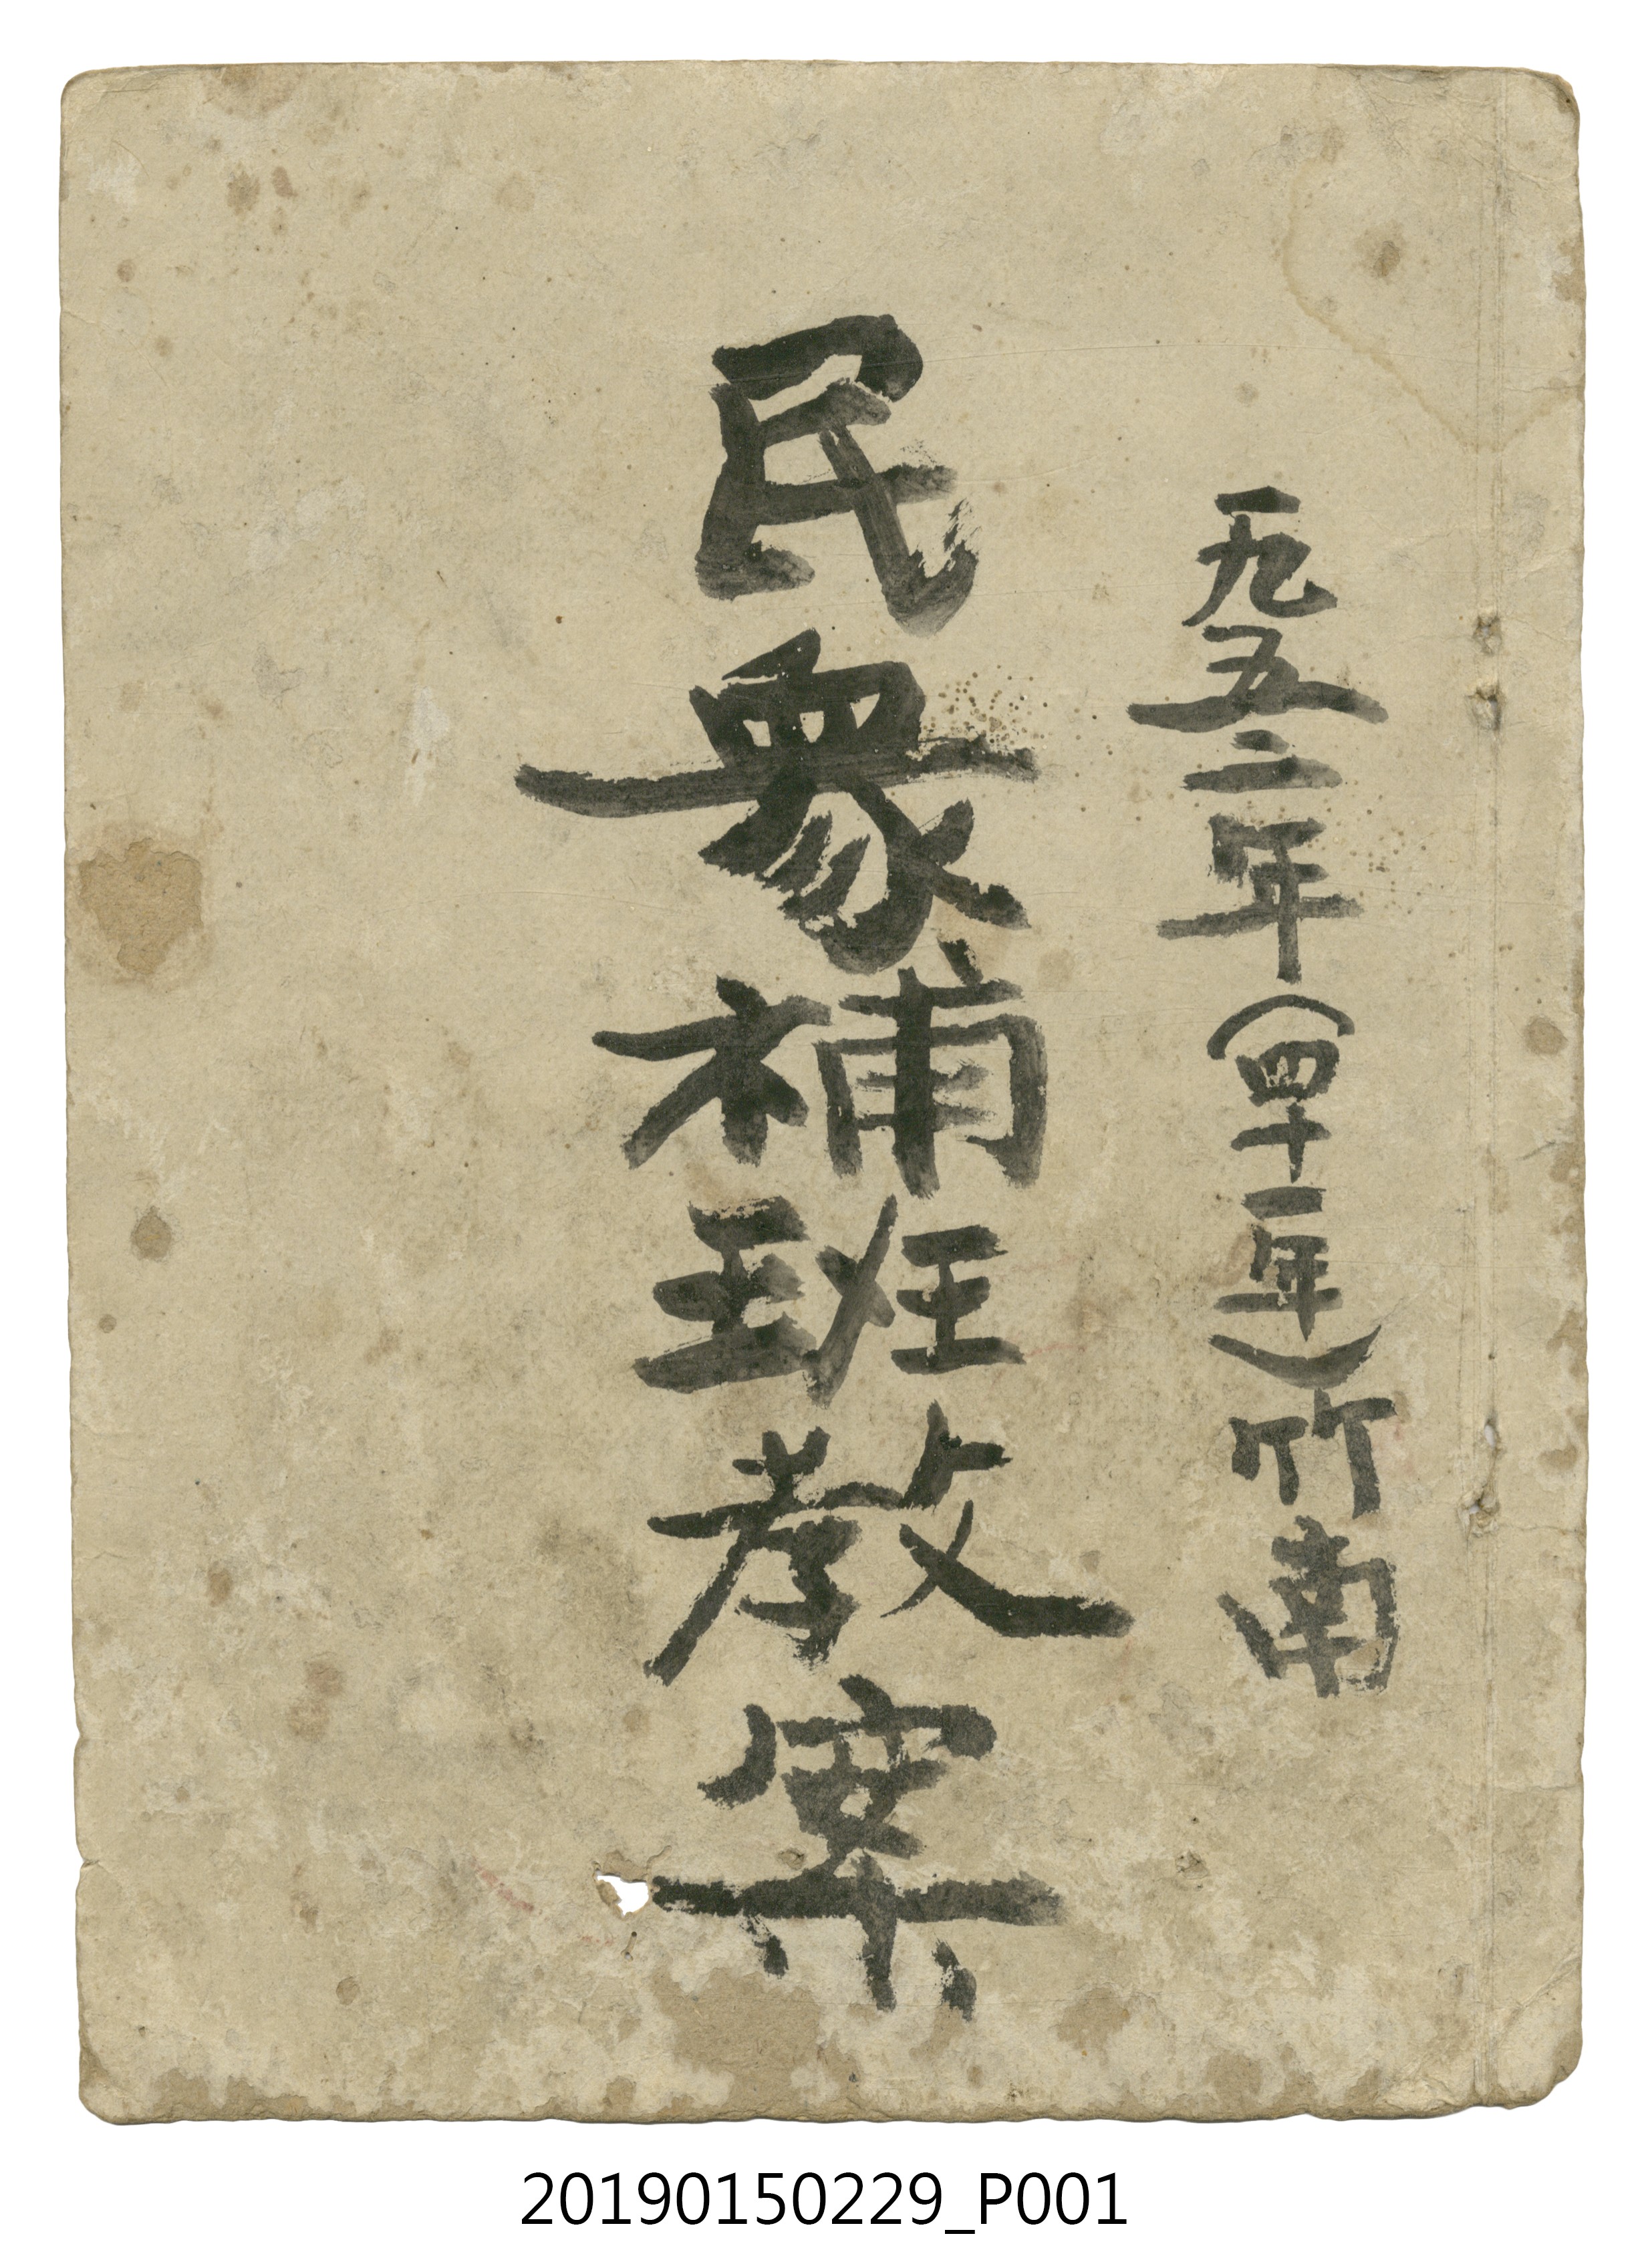 一九五二年(四十一年)竹南
民眾補班教案
20190150229_P001